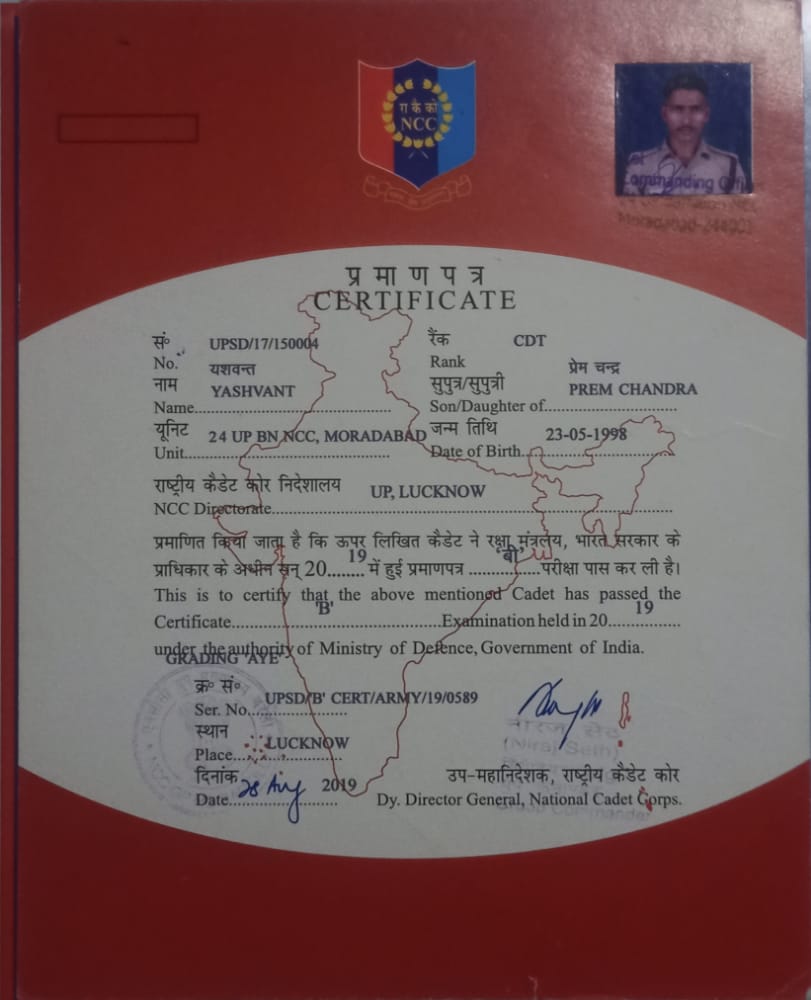 रा कै को
NCC
Commanding Offi
Moradabad-244001
प्रमाणपत्र
CERTIFICATE
सं॰ UPSD/17/150004 रैंक CDT
No. Rank
नाम यशवन्त सुपुत्र/सुपुत्री प्रेम चन्द्र
Name YASHVANT Son/Daughter of PREM CHANDRA
यूनिट जन्म तिथि
Unit 24 UP BN NCC, MORADABAD Date of Birth 23-05-1998
राष्ट्रीय कैडेट कोर निदेशालय
NCC Directorate UP, LUCKNOW
प्रमाणित किया जाता है कि ऊपर लिखित कैडेट ने रक्षा मंत्रलय, भारत सरकार के
प्राधिकार के अधीन सन् 20 19 में हुई प्रमाणपत्र 'बी' परीक्षा पास कर ली है।
This is to certify that the above mentioned Cadet has passed the
Certificate 'B' Examination held in 20 19
under the authority of Ministry of Defence, Government of India.
GRADING 'AYE'
क्र॰ सं॰
Ser. No. UPSD/'B' CERT/ARMY/19/0589
स्थान
Place LUCKNOW
नीरज सेठ
(Niraj Seth)
दिनांक
Date 28 Aug 2019
उप-महानिदेशक, राष्ट्रीय कैडेट कोर
Dy. Director General, National Cadet Corps.
Group Commander